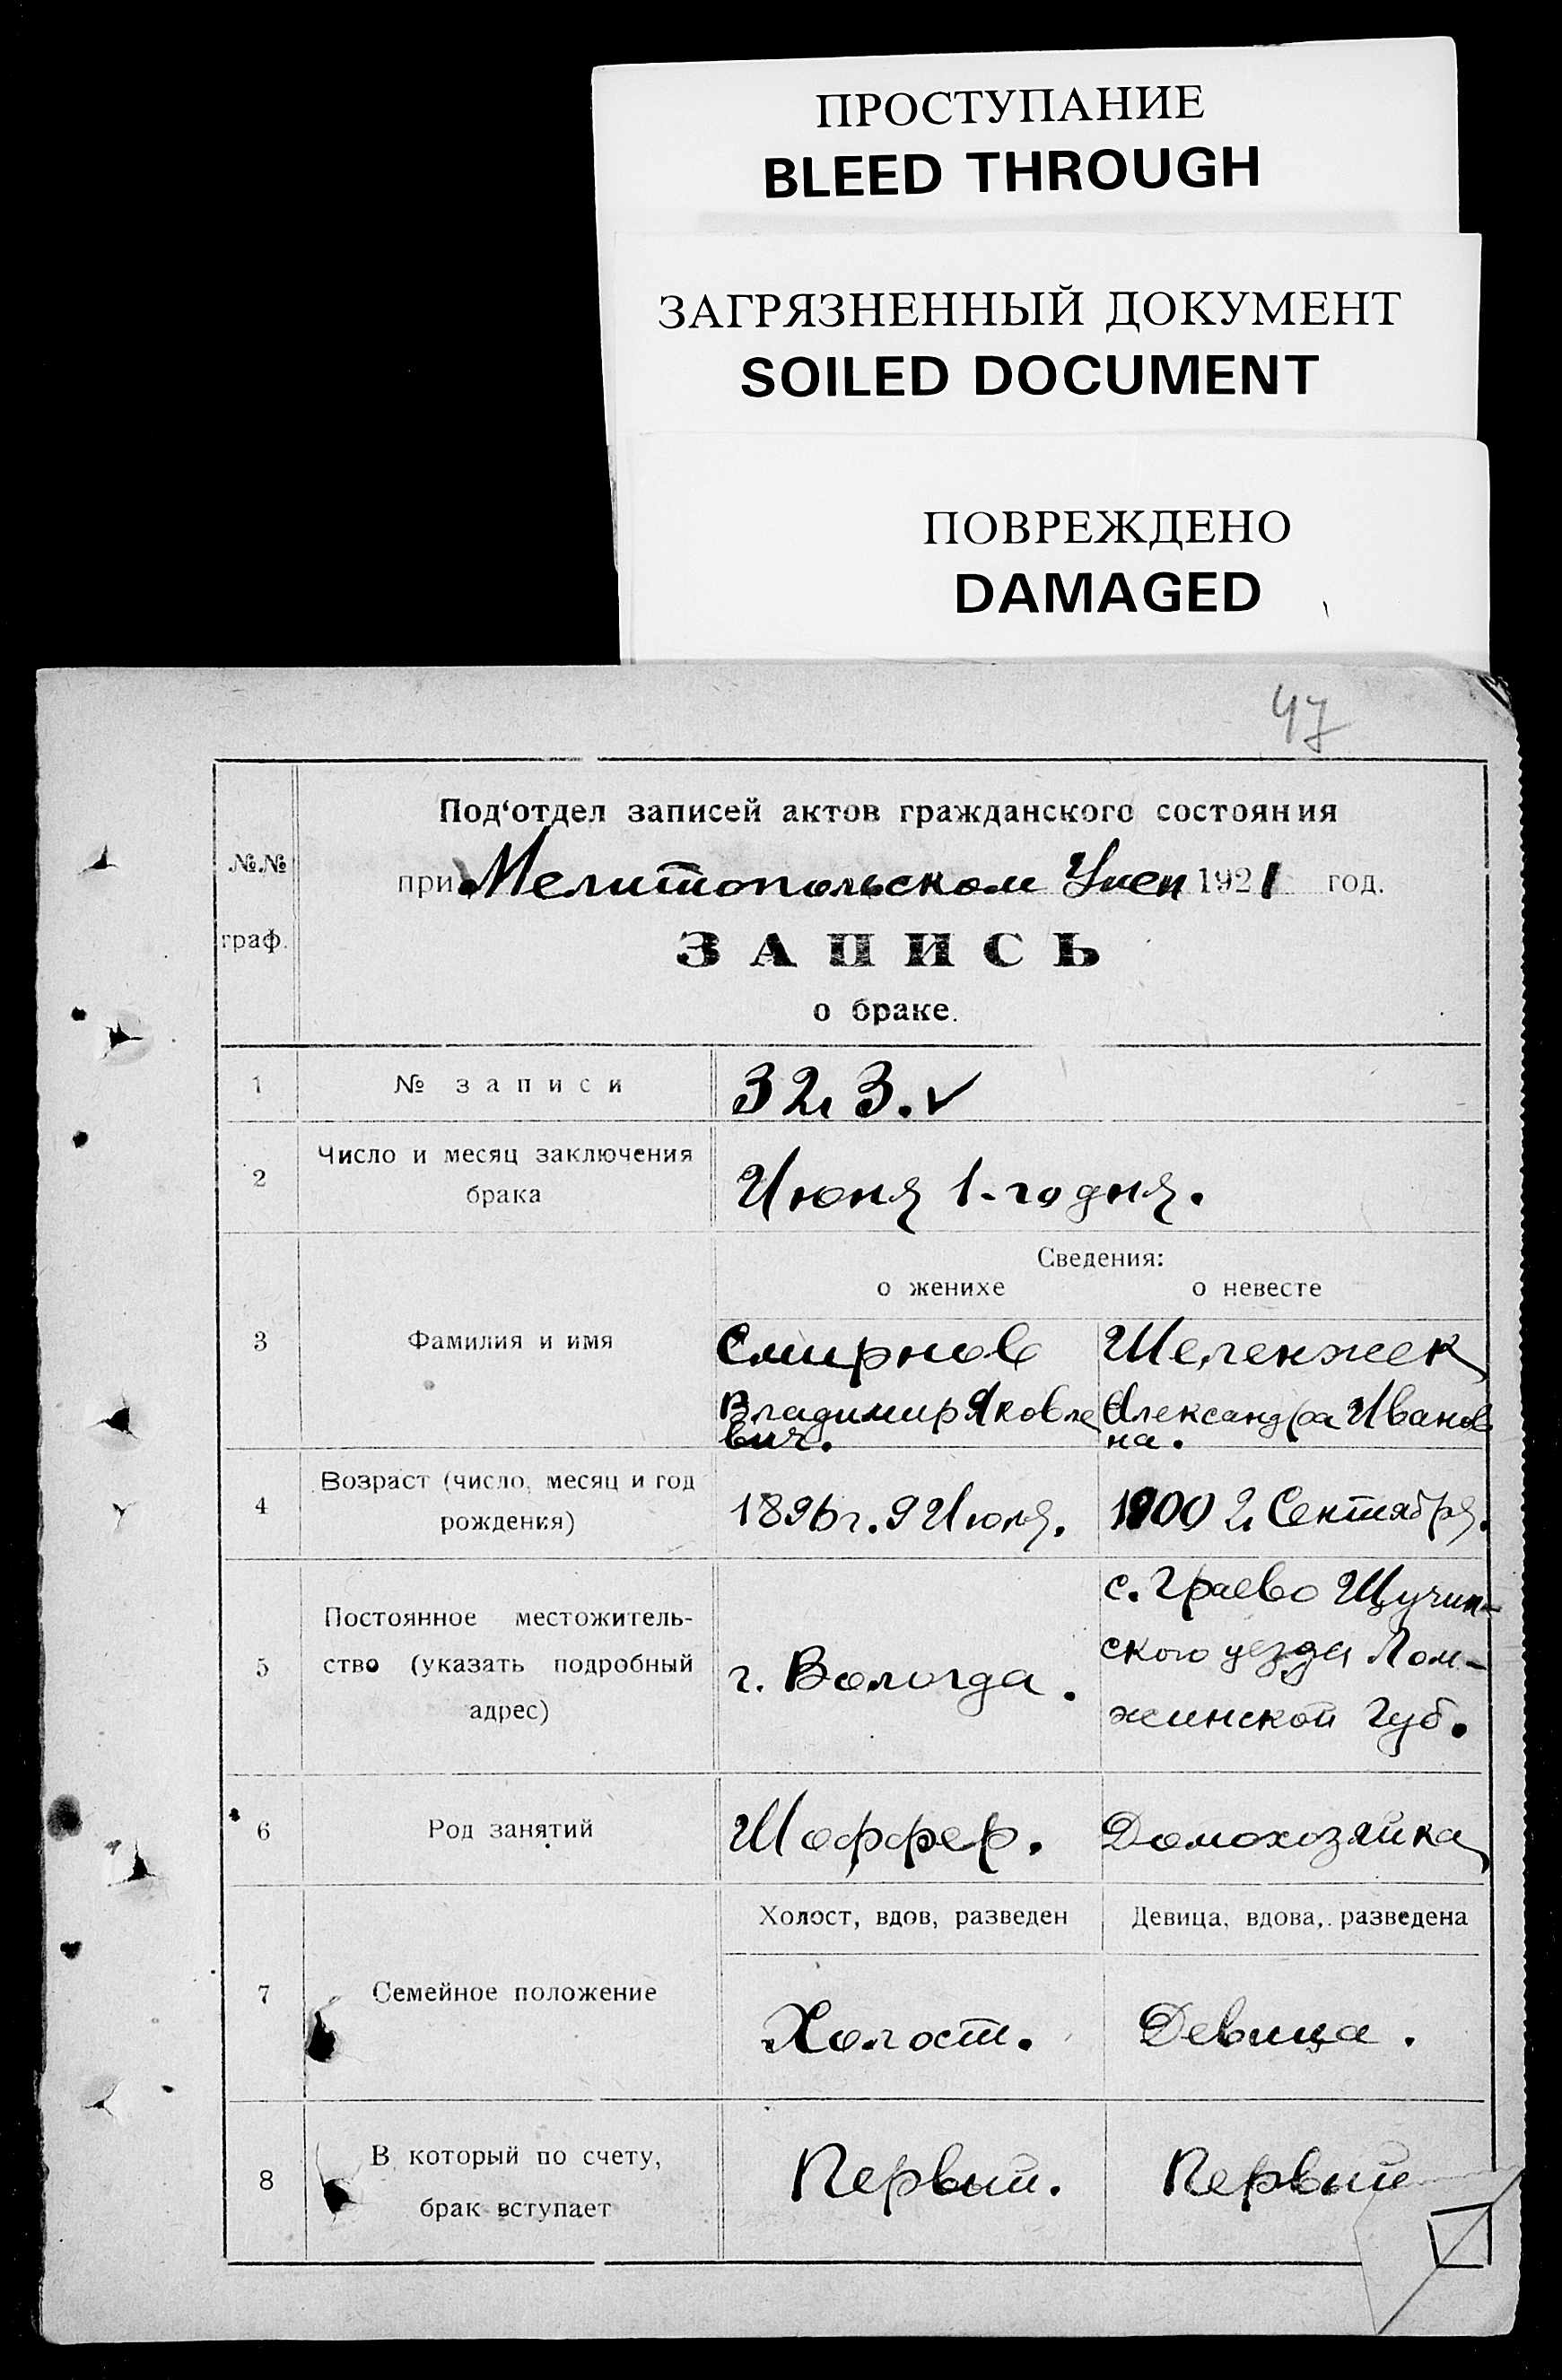 ПРОСТУПАНИЕ
BLEED THROUGH
ЗАГРЯЗНЕННЫЙ ДОКУМЕНТ
SOILED DOCUMENT
ПОВРЕЖДЕНО
DAMAGED
47
Под‘отдел записей актов гражданского состояния
№.№
граф.
при Мелитопольском 1921 год.
ЗАПИСЬ
о браке.
1 № записи 323.✓
2 Число и месяц заключения
брака
Июня 1-го дня.
Сведения:
о женихе о невесте
3 Фамилия и имя
Смирнов
Владимир Яковле
вич.
Шеленжек
Александра Иванов
на.
4 Возраст (число, месяц и год
рождения)
1896г. 9 Июля.
1900 2 Сентября.
5 Постоянное местожитель-
ство (указать подробный
адрес)
г. Вологда.
с. Граево Щучин-
ского уезда Лом-
жинской Губ.
6 Род занятий Шоффер. Домохозяйка
Холост, вдов, разведен Девица, вдова, разведена
7 Семейное положение Холост. Девица.
8 В который по счету,
брак вступает
Первый. Первый